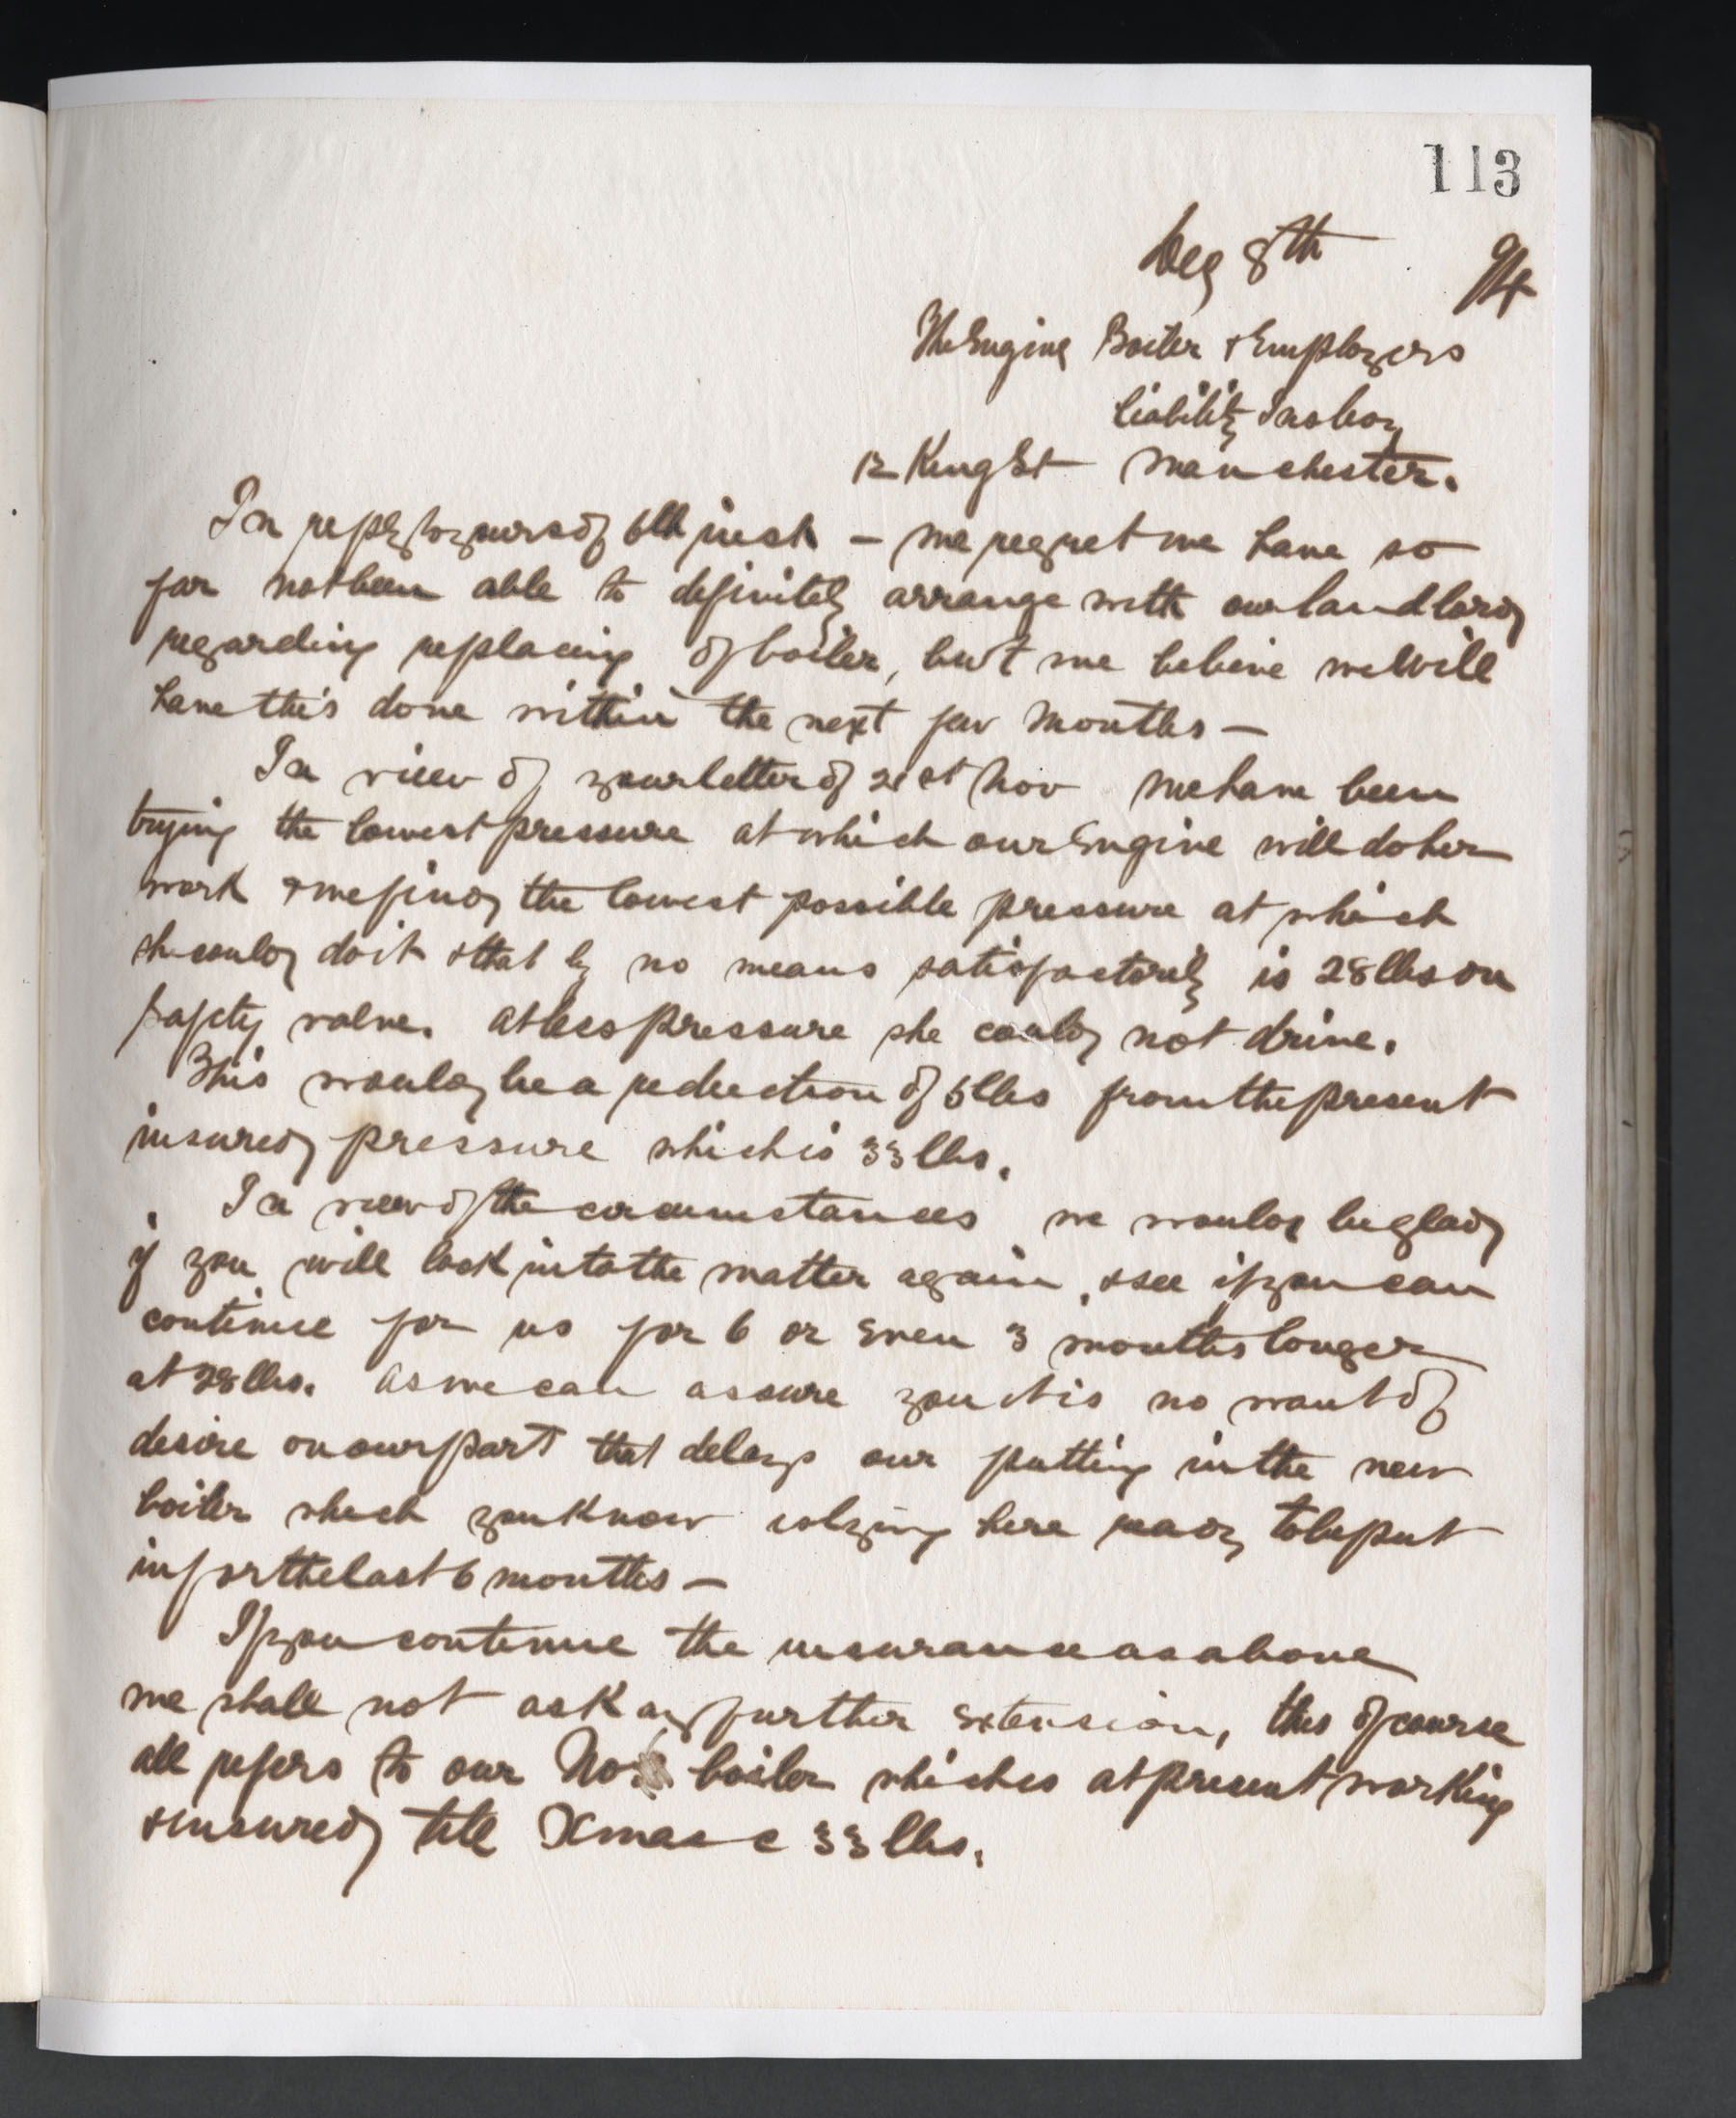 113
Dec 8th 94
The Engine Boiler & Employers
Liability Ins Coy
12 King St Manchester.
In reply to yours of 6th inst — we regret we have so
far not been able to definitely arrange with our landlord
regarding replacing of boiler, but we believe we will
have this done within the next few months —
In view of your letter of 21st Nov we have been
trying the lowest pressure at which our Engine will do her
work & we find the lowest possible pressure at which
she could do it & that by no means satisfactorily is 28 lbs on
safety valve. At less pressure she could not drive.
This would be a reduction of 5 lbs from the present
insured pressure which is 33 lbs.
In view of the circumstances we would be glad
if you will look into the matter again, & see if you can
continue for us for 6 or even 3 months longer
at 28 lbs. as we can assure you it is no want of
desire on our part that delays our putting in the new
boiler which you know is lying here ready to be put
in for the last 6 months —
If you continue the insurance as above
we shall not ask any further extension, this of course
all refers to our No. boiler which is at present working
& insured till Xmas @ 33 lbs.